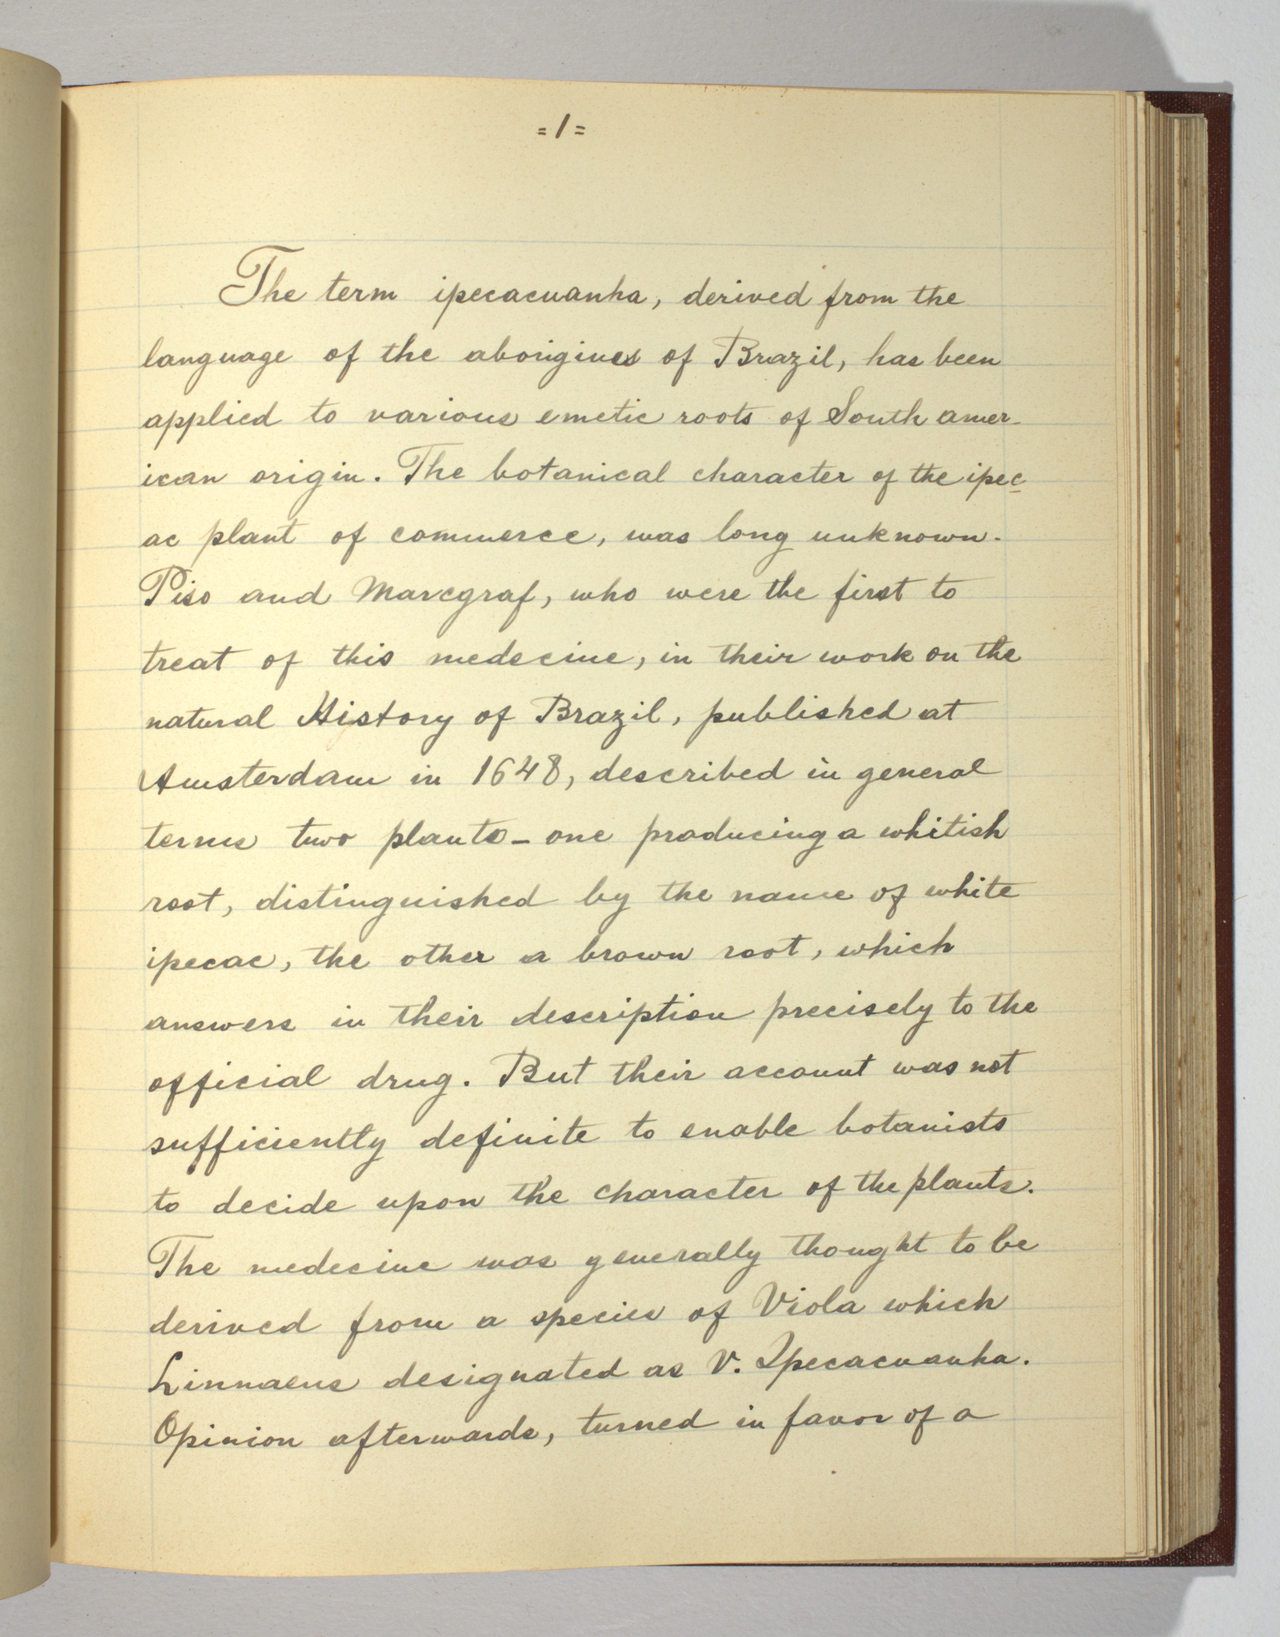 =1=
The term ipecacuanha, derived from the
language of the aborigines of Brazil, has been
applied to various emetic roots of South amer-
ican origin. The botanical character of the ipec-
ac plant of commerce, was long unknown.
Piso and Marcgraf, who were the first to
treat of this medecine, in their work on the
natural History of Brazil, published at
Amsterdam in 1648, described in general
terms two plants - one producing a whitish
root, distinguished by the name of white
ipecac, the other a brown root, which
answers in their description precisely to the
official drug. But their account was not
sufficiently definite to enable botanists
to decide upon the character of the plants.
The medecine was generally thought to be
derived from a species of Viola which
Linnaeus designated as V. Ipecacuanha.
Opinion afterwards, turned in favor of a